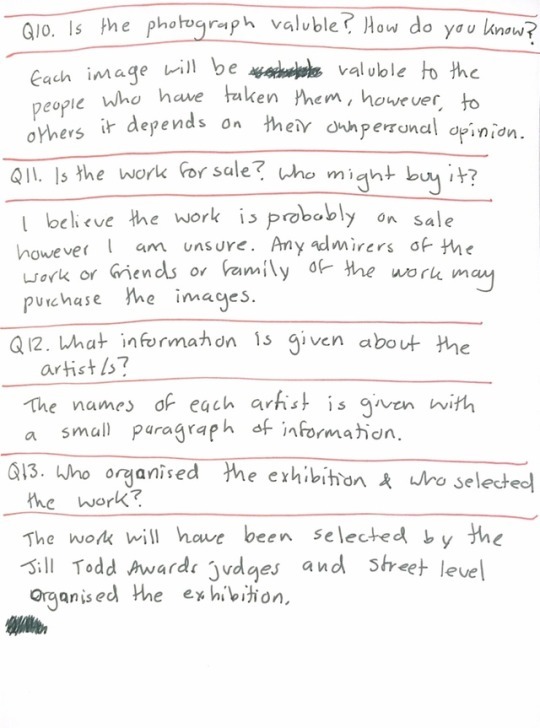 Q10. Is the photograph valuble? How do you know?
Each image will be valuble to the
people who have taken them, however, to
others it depends on their own personal opinion.
Q11. Is the work for sale? Who might buy it?
I believe the work is probably on sale
however I am unsure. Any admirers of the
work or friends or family of the work may
purchase the images.
Q12. What information is given about the
artist/s?
The names of each artist is given with
a small paragraph of information.
Q13. Who organised the exhibition & who selected
the work?
The work will have been selected by the
Jill Todd Awards judges and street level
organised the exhibition.